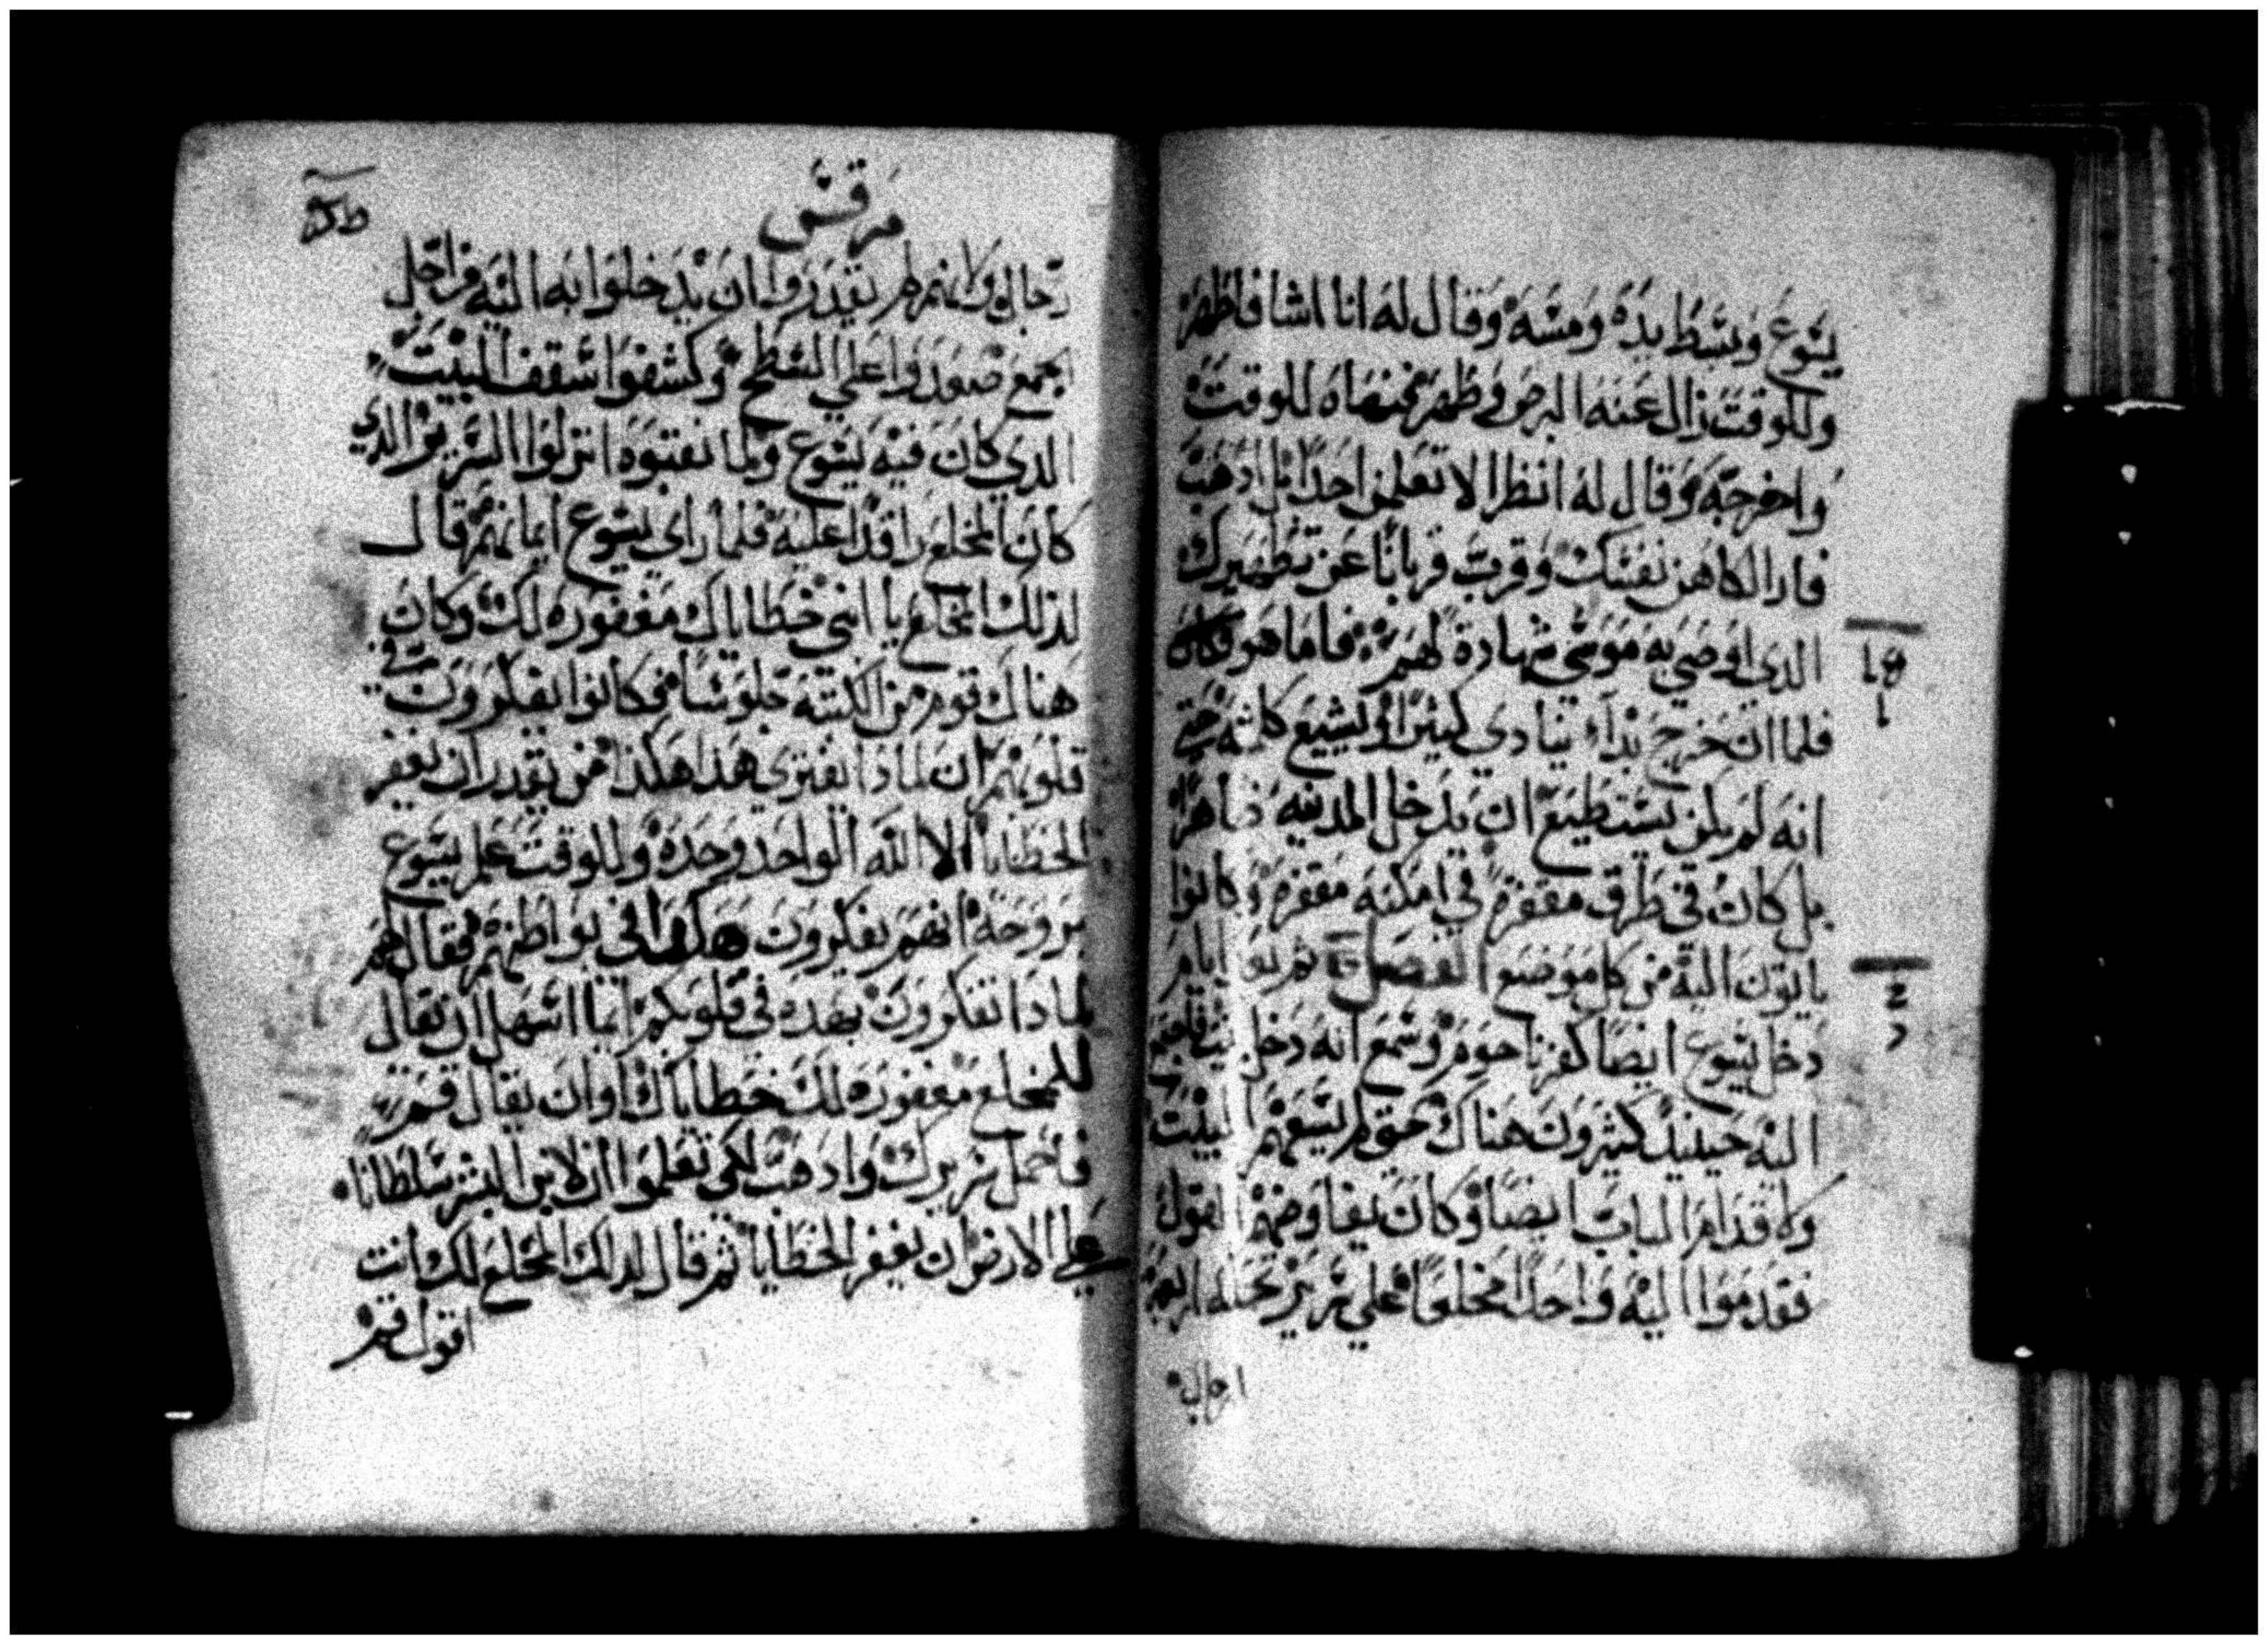 يسوع وبسط يده ومسه وقال له انا اشا فاطهر
وللوقت زال عنه البرص وطهر نحينها للوقت
واخرجه وقال له انظر الا تعلمن احدا بل ادهب
فار الكاهن نفسك وقرب قربانا عن تطهيرك
الدي اوصي به موسي شهادة لهم فاما هو فكان
فلما ان خرج بدا ينادي كثيرا ويشيع كلمته حتي
انه لم يكن يستطيع ان يدخل المدينه ظاهرا
بل كان في طرق مقفرة في امكنه مقفره وكانوا
ياتون اليه من كل موضع الفصل ثم بعد ايام
دخل يسوع ايضا كفرناحوم وسمع انه دخل بيتا فاجتمع
اليه حينيد كثيرون هناك حتى لم يسعهم البيت
ولا قدام الباب ايضا وكان يفاوضهم القول
فقدموا اليه واحدا مخلعا علي سرير تحمله اربعه
ارجال
مرقس
رجال ولانهم لم يقدروا ان يدخلوا به اليه من اجل
الجمع صعدوا علي السطح وكشفوا سقف البيت
الدي كان فيه يسوع ولما نقبوه انزلوا السرير الدي
كان المخلع راقدا عليه فلما راي يسوع ايمانهم قال
لذلك المخلع يا ابني خطاياك مغفوره لك وكان
هناك قوم من الكتبه جلوسا فكانوا يفكرون في
قلوبهم ان لمادا يفتري هدا هكدا من يقدر ان يغفر
الخطايا الا الله الواحد وحده وللوقت علم يسوع
بروحه انهم يفكرون هكدا في بواطنهم فقال لهم
لمادا تفكرون بهده في قلوبكم ايما اسهل ان يقال
للمخلع مغفوره لك خطاياك او ان يقال قم
فاحمل سريرك وادهب لكي تعلموا ان لابن البشر سلطانا
علي الارض ان يغفر الخطايا ثم قال لدلك المخلع لك انت
اقول قم